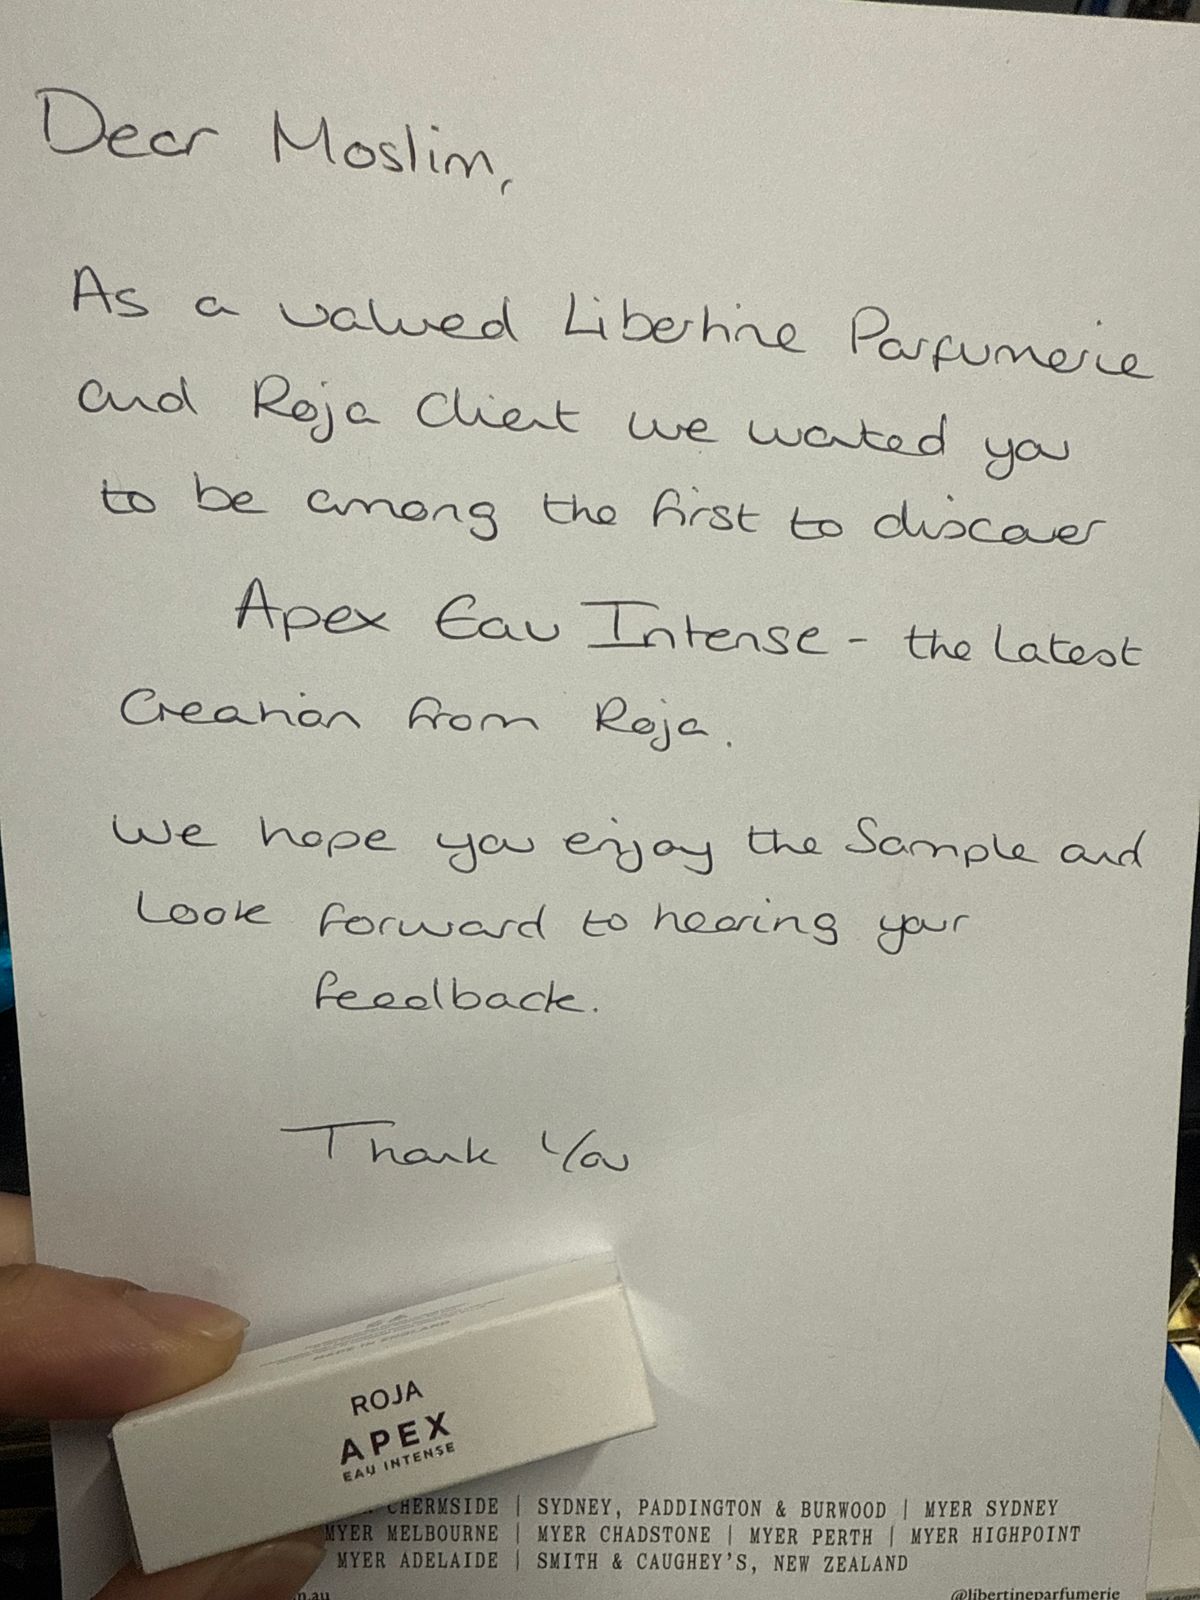 Dear Moslim,
As a valued Libertine Parfumerie
and Roja Client we wanted you
to be among the first to discover
Apex Eau Intense - the latest
Creation from Roja.
We hope you enjoy the Sample and
Look forward to hearing your
feedback.
Thank You
MADE IN ENGLAND
ROJA
APEX
EAU INTENSE
CHERMSIDE | SYDNEY, PADDINGTON & BURWOOD | MYER SYDNEY
MYER MELBOURNE | MYER CHADSTONE | MYER PERTH | MYER HIGHPOINT
MYER ADELAIDE | SMITH & CAUGHEY'S, NEW ZEALAND
@libertineparfumerie